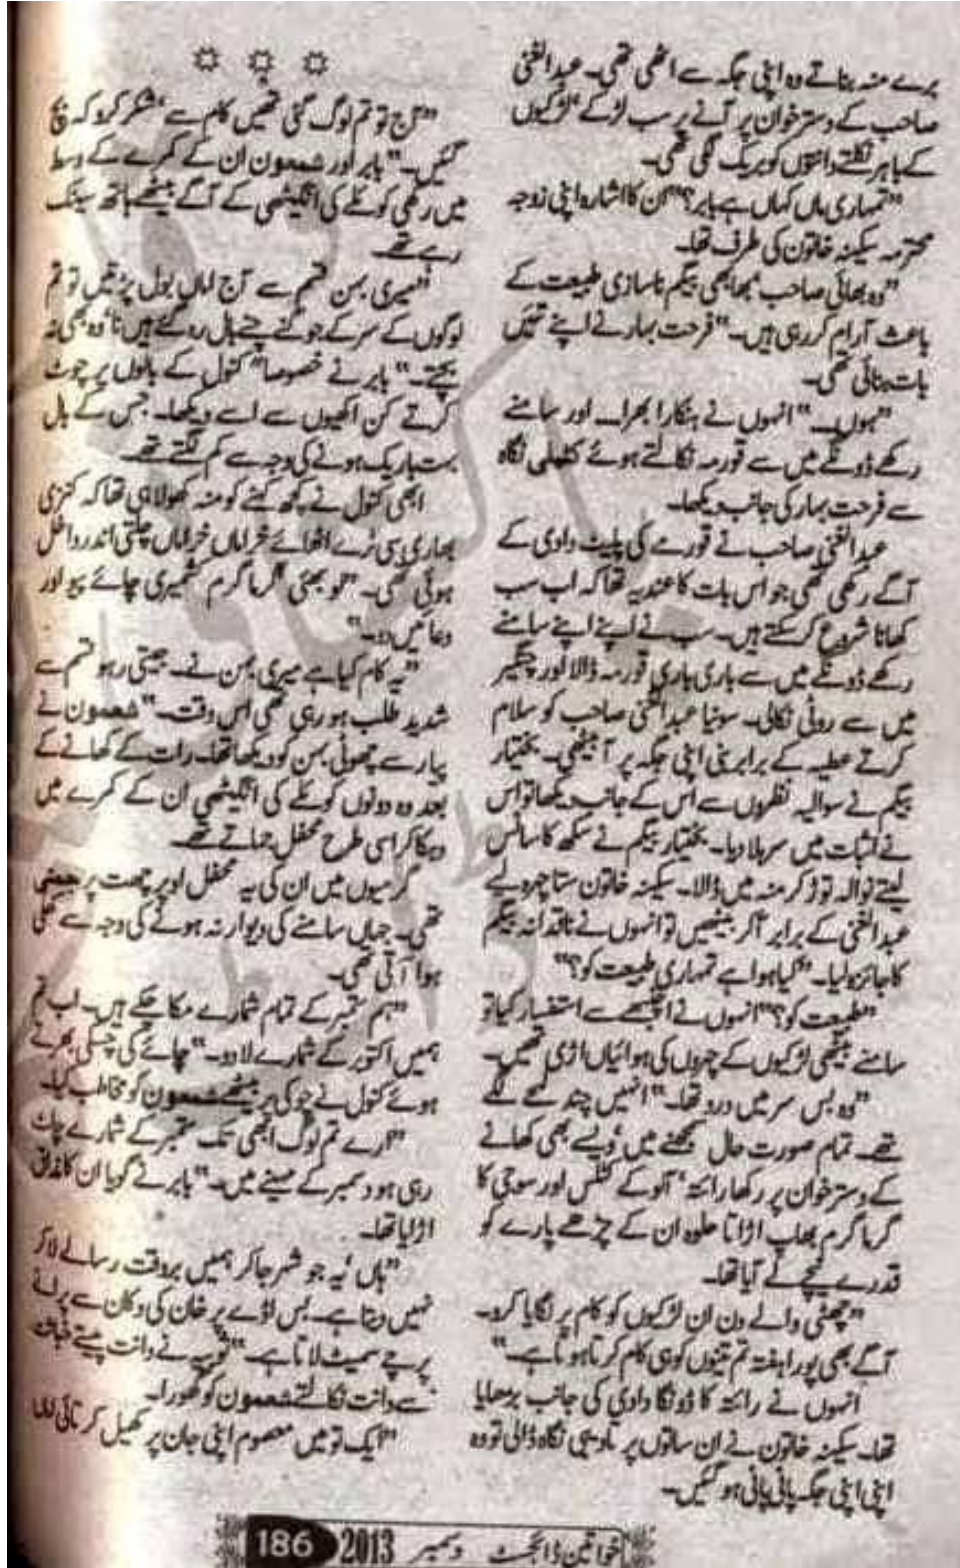 برے منہ بناتے وہ اپنی جگہ سے اٹھی تھی۔ عبدالغنی
صاحب کے دسترخوان پر آنے پر سب لڑکے' لڑکیوں
کے باہر نکلتے دانتوں کو بریک لگی تھی۔
"تمہاری ماں کہاں ہے بابر؟" ان کا اشارہ اپنی زوجہ
محترمہ سکینہ خاتون کی طرف تھا۔
"وہ بھائی صاحب بھابھی بیگم ناسازی طبیعت کے
باعث آرام کر رہی ہیں۔" فرحت بہار نے اپنے تئیں
بات بنائی تھی۔
"ہوں۔" انہوں نے ہنکارا بھرا۔ اور سامنے
رکھے ڈونگے میں سے قورمہ نکالتے ہوئے کٹیلی نگاہ
سے فرحت بہار کی جانب دیکھا۔
عبدالغنی صاحب نے قورمے کی پلیٹ دادی کے
آگے رکھی تھی جو اس بات کا عندیہ تھا کہ اب سب
کھانا شروع کر سکتے ہیں۔ سب نے اپنے اپنے سامنے
رکھے ڈونگے میں سے باری باری قورمہ ڈالا اور چنگیر
میں سے روٹی نکالی۔ سونیا عبدالغنی صاحب کو سلام
کرتے عطیہ کے برابر بنی اپنی جگہ پر آ بیٹھی۔ بختیار
بیگم نے سوالیہ نظروں سے اس کے جانب دیکھا تو اس
نے اثبات میں سرہلا دیا۔ بختیار بیگم نے سکھ کا سانس
لیتے نوالہ توڑ کر منہ میں ڈالا۔ سکینہ خاتون ستا چہرہ لیے
عبدالغنی کے برابر آکر بیٹھیں تو انہوں نے ناقدانہ بیگم
کا جائزہ لیا۔ "کیا ہوا ہے تمہاری طبیعت کو؟"
"طبیعت کو؟" انہوں نے اچنبھے سے استفسار کیا تو
سامنے بیٹھی لڑکیوں کے چہروں کی ہوائیاں اڑی تھیں۔
"وہ بس سر میں درد تھا۔" انہیں چند لمحے لگے
تھے۔ تمام صورت حال سمجھنے میں' ویسے بھی کھانے
کے دسترخوان پر رکھا رائتہ' آلو کے کٹلس اور سوجی کا
گرما گرم بھاپ اڑاتا حلوہ ان کے چڑھے پارے کو
قدرے نیچے لے آیا تھا۔
"چھٹی والے دن ان لڑکیوں کو کام پر لگایا کرو۔
آگے بھی پورا ہفتہ تم تینوں کو ہی کام کرنا ہوتا ہے۔"
انہوں نے رائتہ کا ڈونگا دادی کی جانب بڑھایا
تھا۔ سکینہ خاتون نے ان ساتوں پر تادیبی نگاہ ڈالی تو وہ
اپنی اپنی جگہ پانی پانی ہو گئیں۔
"آج تو تم لوگ گئی تھیں کام سے' شکر کرو کہ بچ
گئیں۔" بابر اور شمعون ان کے کمرے کے وسط
میں رکھی کوئلے کی انگیٹھی کے آگے بیٹھے ہاتھ سینک
رہے تھے۔
"میری بہن قسم سے آج اماں بول پڑتیں تو تم
لوگوں کے سر کے جو گنے چنے بال رہ گئے ہیں نا' وہ بھی نہ
بچتے۔" بابر نے خصوصا" کنول کے بالوں پر چوٹ
کرتے کن اکھیوں سے اسے دیکھا۔ جس کے بال
بہت باریک ہونے کی وجہ سے کم لگتے تھے۔
ابھی کنول نے کچھ کہنے کو منہ کھولا ہی تھا کہ کنزی
بھاری سی ٹرے اٹھائے خراماں خراماں چلتی اندر داخل
ہوئی تھی۔ "لو بھئی گرم گرم کشمیری چائے پیو اور
دعائیں دو۔"
"یہ کام کیا ہے میری بہن نے۔ جیتی رہو قسم سے
شدید طلب ہو رہی تھی اس وقت۔" شمعون نے
پیار سے چھوٹی بہن کو دیکھا تھا۔ رات کے کھانے کے
بعد وہ دونوں کوئلے کی انگیٹھی ان کے کمرے میں
دہکا کر اسی طرح محفل جماتے تھے۔
گرمیوں میں ان کی یہ محفل اوپر چھت پر جمتی
تھی۔ جہاں سامنے کی دیوار نہ ہونے کی وجہ سے کھلی
ہوا آتی تھی۔
"ہم ستمبر کے تمام شمارے مکا چکے ہیں۔ اب تم
ہمیں اکتوبر کے شمارے لا دو۔" چائے کی چسکی بھرتے
ہوئے کنول نے چوکی پر بیٹھے شمعون کو مخاطب کیا۔
"ارے تم لوگ ابھی تک ستمبر کے شمارے چاٹ
رہی ہو دسمبر کے مہینے میں۔" بابر نے گویا ان کا مذاق
اڑایا تھا۔
"ہاں' یہ جو شہر جا کر ہمیں بروقت رسالے لا کر
نہیں دیتا ہے۔ بس اڈے پر خان کی دکان سے پرانے
پرچے سمیٹ لاتا ہے۔" نے دانت پیستے
سے دانت نکالتے شمعون کو گھورا۔
"ایک تو میں معصوم اپنی جان پر کھیل کر تائی اماں
خواتین ڈائجسٹ دسمبر 2013 186